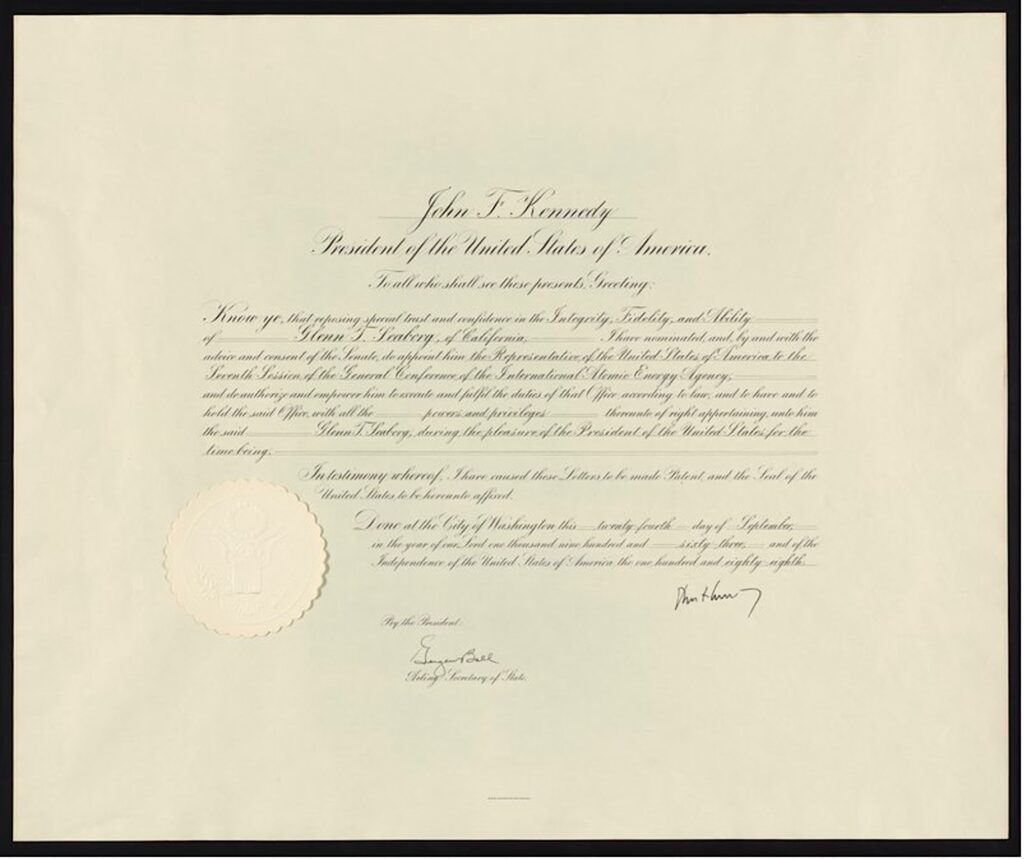 John F. Kennedy
President of the United States of America.
To all who shall see these presents, Greeting:
Know ye, that reposing special trust and confidence in the Integrity, Fidelity, and Ability
of Glenn T. Seaborg, of California, I have nominated, and, by and with the
advice and consent of the Senate, do appoint him the Representative of the United States of America to the
Seventh Session of the General Conference of the International Atomic Energy Agency,
and do authorize and empower him to execute and fulfil the duties of that Office according to law, and to have and to
hold the said Office, with all the powers and privileges thereunto of right appertaining, unto him
the said Glenn T. Seaborg, during the pleasure of the President of the United States for the
time being.
In testimony whereof, I have caused these Letters to be made Patent, and the Seal of the
United States to be hereunto affixed.
Done at the City of Washington this twenty-fourth day of September,
in the year of our Lord one thousand nine hundred and sixty-three, and of the
Independence of the United States of America the one hundred and eighty-eighth.
By the President:
George W. Ball
Acting Secretary of State.